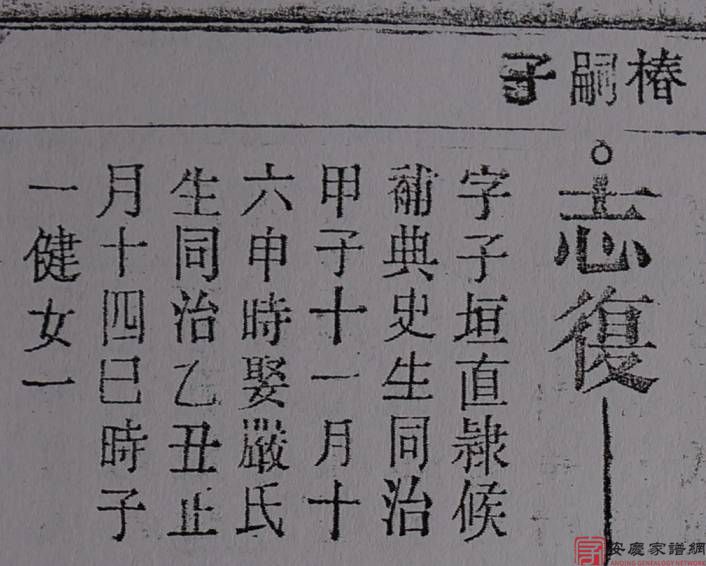 椿嗣子
志復
字子垣直隸候
補典史生同治
甲子十一月十
六申時娶嚴氏
生同治乙丑正
月十四巳時子
一健女一
安慶家譜網
ANQING GENEALOGY NETWORK